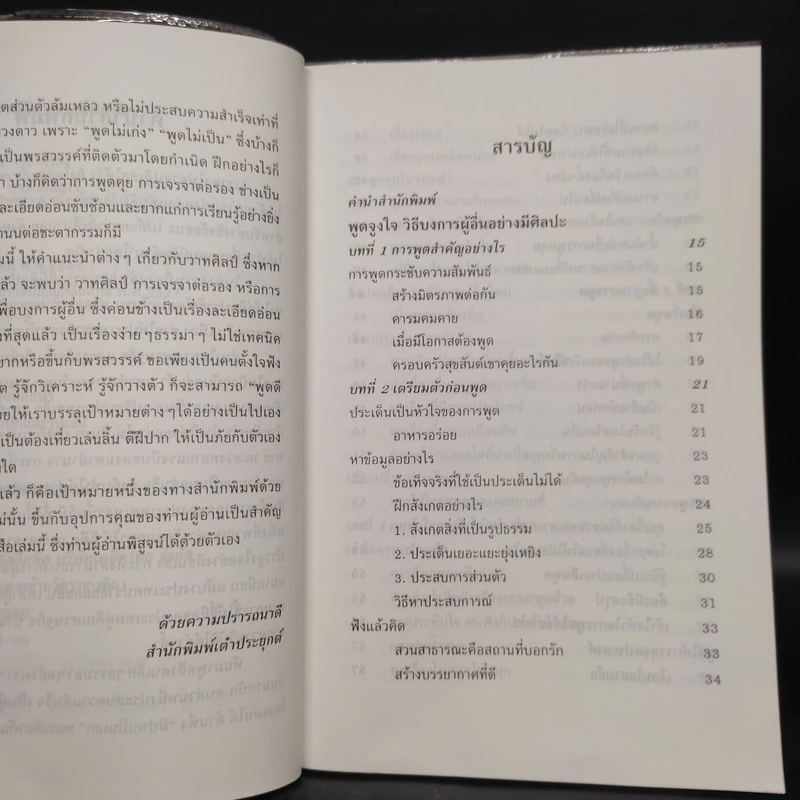 ตส่วนตัวล้มเหลว หรือไม่ประสบความสำเร็จเท่าที่
วงดาว เพราะ “พูดไม่เก่ง” “พูดไม่เป็น” ซึ่งบ้างก็
เป็นพรสวรรค์ที่ติดตัวมาโดยกำเนิด ฝึกอย่างไรก็
า บ้างก็คิดว่าการพูดคุย การเจรจาต่อรอง ช่างเป็น
ละเอียดอ่อนซับซ้อนและยากแก่การเรียนรู้อย่างยิ่ง
านนต่อชะตากรรมก็มี
มนี้ ให้คำแนะนำต่างๆ เกี่ยวกับวาทศิลป์ ซึ่งหาก
ล้ว จะพบว่า วาทศิลป์ การเจรจาต่อรอง หรือการ
พื่อบงการผู้อื่น ซึ่งค่อนข้างเป็นเรื่องละเอียดอ่อน
งที่สุดแล้ว เป็นเรื่องง่ายๆธรรมาๆ ไม่ใช่เทคนิค
ยากหรือขึ้นกับพรสวรรค์ ขอเพียงเป็นคนตั้งใจฟัง
ต รู้จักวิเคราะห์ รู้จักวางตัว ก็จะสามารถ “พูดดี
ยให้เราบรรลุเป้าหมายต่างๆได้อย่างเป็นไปเอง
เป็นต้องเที่ยวเล่นลิ้น ตีฝีปาก ให้เป็นภัยกับตัวเอง
ใด
ล้ว ก็คือเป้าหมายหนึ่งของทางสำนักพิมพ์ด้วย
ม่นั้น ขึ้นกับอุปการคุณของท่านผู้อ่านเป็นสำคัญ
สือเล่มนี้ ซึ่งท่านผู้อ่านพิสูจน์ได้ด้วยตัวเอง
ด้วยความปรารถนาดี
สำนักพิมพ์เต๋าประยุกต์
สารบัญ
คำนำสำนักพิมพ์
พูดจูงใจ วิธีบงการผู้อื่นอย่างมีศิลปะ
บทที่ 1 การพูดสำคัญอย่างไร 15
การพูดกระชับความสัมพันธ์ 15
สร้างมิตรภาพต่อกัน 15
คารมคมคาย 16
เมื่อมีโอกาสต้องพูด 17
ครอบครัวสุขสันต์เขาคุยอะไรกัน 19
บทที่ 2 เตรียมตัวก่อนพูด 21
ประเด็นเป็นหัวใจของการพูด 21
อาหารอร่อย 21
หาข้อมูลอย่างไร 23
ข้อเท็จจริงที่ใช้เป็นประเด็นไม่ได้ 23
ฝึกสังเกตอย่างไร 24
1. สังเกตสิ่งที่เป็นรูปธรรม 25
2. ประเด็นเยอะแยะยุ่งเหยิง 28
3. ประสบการส่วนตัว 30
วิธีหาประสบการณ์ 31
ฟังแล้วคิด 33
สวนสาธารณะคือสถานที่บอกรัก 33
สร้างบรรยากาศที่ดี 34